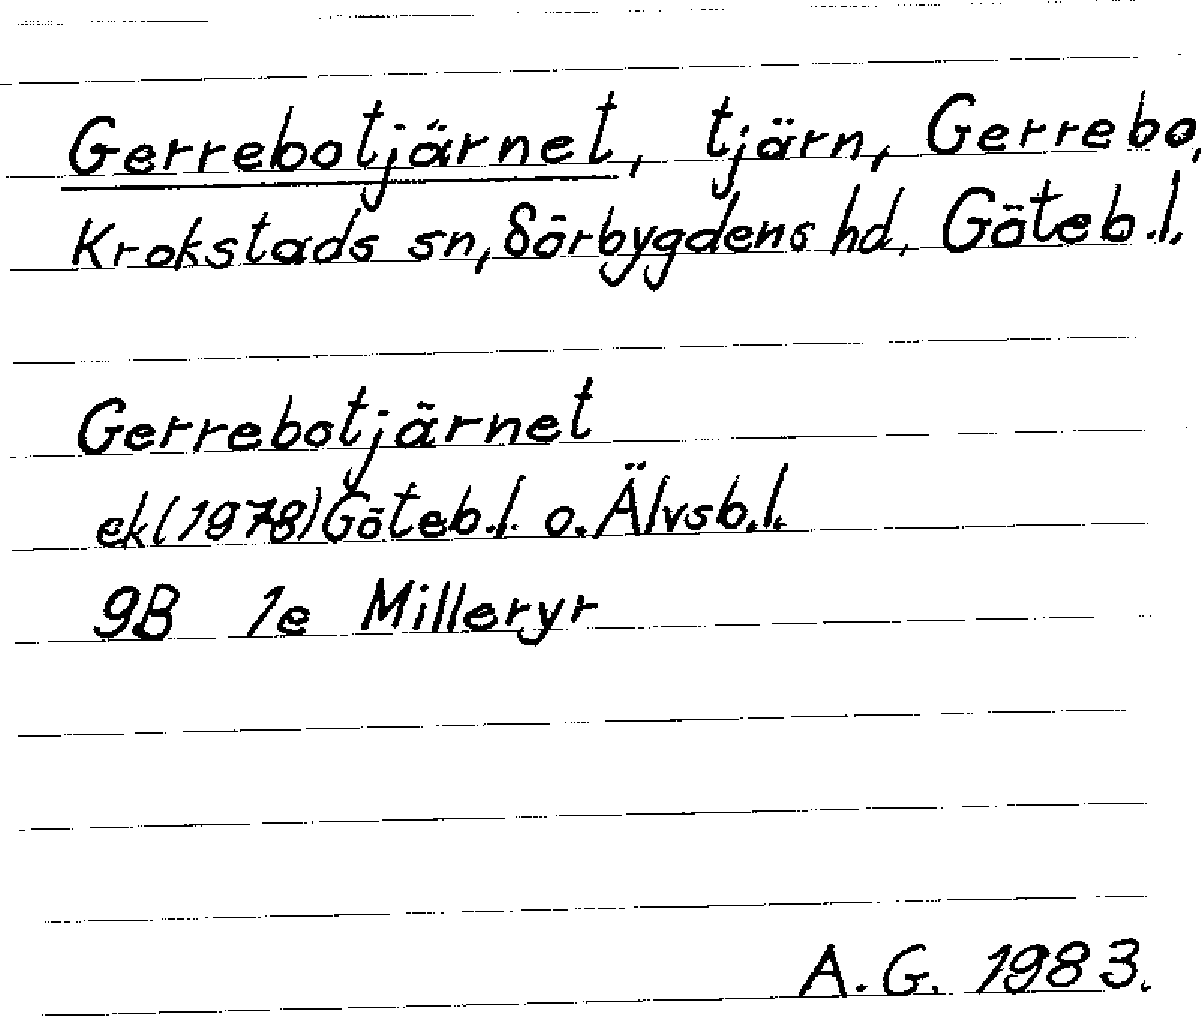 Gerrebotjärnet, tjärn, Gerrebo,
Krokstads sn, Sörbygdens hd, Göteb.l.
Gerrebotjärnet
ek(1978)Göteb.l. o. Älvsb.l.
9B 1e Milleryr
A.G. 1983.